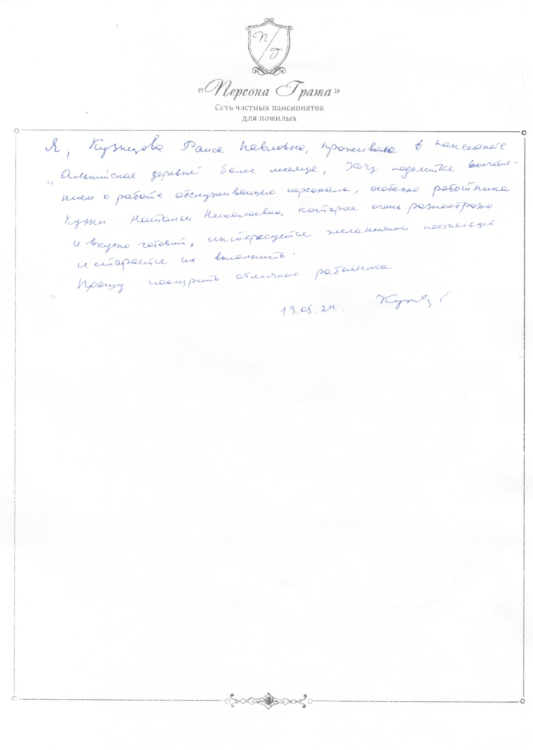 П/Г
«Персона Грата»
Сеть частных пансионатов
для пожилых
Я, Кузнецова Раиса Павловна, проживала в пансионате
"Альпийская деревня" более месяца, Хочу поделиться впечатле-
нием о работе обслуживающего персонала, особенно работника
кухни Натальи Николаевны, которая очень разнообразно
и вкусно готовит, интересуется желаниями постояльцев
и старается их выполнить.
Прошу поощрить отличного работника
13.05.24.